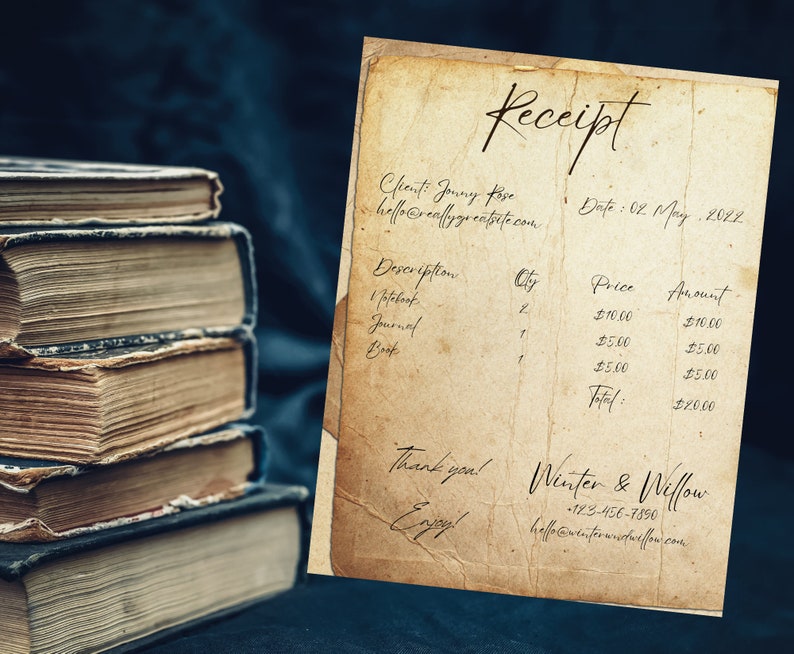 Receipt
Client: Jonny Rose
hello@reallygreatsite.com
Date : 02 May , 2022
Description Qty Price Amount
Notebook 2 $10.00 $10.00
Journal 1 $5.00 $5.00
Book 1 $5.00 $5.00
Total : $20.00
Thank you!
Enjoy!
Winter & Willow
+123-456-7890
hello@winterwndwillow.com